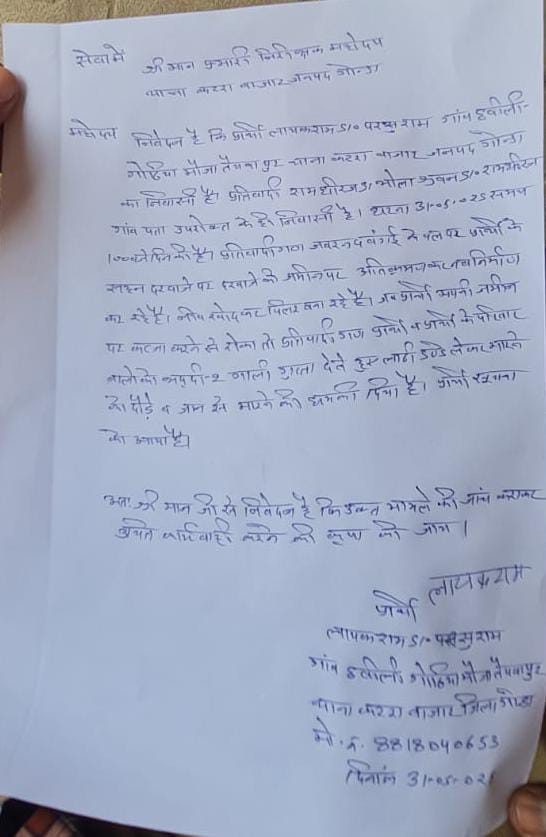 सेवामें
श्री मान प्रभारी निरीक्षक महोदय
थाना कटरा बाजार जनपद गोण्डा
महोदय निवेदन है कि प्रार्थी लायकराम S/० परसुराम गांव हवीली-
गोहिया मौजा तेपवापुर थाना कटरा बाजार जनपद गोण्डा
का निवासी है। प्रतिवादी रामधीरज S/ भोला भुवन S/०
गांव पता उपरोक्त के ही निवासी है। घटना 31-05-025 समय
10:00 बजे दिन की है। प्रतिवादीगण जबरन दबंगई के बल पर प्रार्थी के
सहन दरवाजे पर दरवाजे की जमीन पर अतिक्रमण कर नवनिर्माण
कर रहे है। नीव खोदकर पिलर बना रहे है। जब प्रार्थी अपनी जमीन
पर कब्जा करने से रोका तो प्रतिवादीगण प्रार्थी व प्रार्थी के परिवार
वालो को भद्दी-२ गाली गुप्ता देते हुए लाठी डण्डे लेकर मारने
को दौड़े व जान से मारने की धमकी दिया है। प्रार्थी सूचना
को आया है।
अतः श्री मान जी से निवेदन है कि उक्त मामले की जांच कराकर
उचित कार्यवाही करने की कृपा की जाय।
लायकराम
प्रार्थी
लायकराम S/० परसुराम
गांव हवीली गोहिया मौजा तेपवापुर
थाना कटरा बाजार जिला गोण्डा
मो. नं. 8818040653
दिनांक 31-05-025